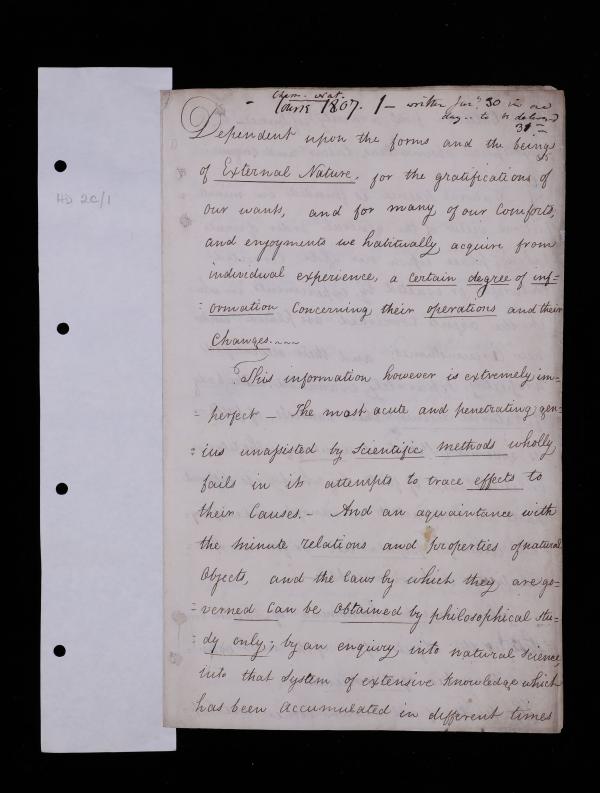 HD 2C/1
Chem. 
- Course 1807. 1 - written Jan.y 30 in one
day - to be delivered
31st
Dependent upon the forms and the beings
of External Nature, for the gratifications of
our wants, and for many of our Comforts,
and enjoyments we habitually acquire from
individual experience, a certain degree of inf=
= ormation Concerning their operations and their
Changes.~~~
This information however is extremely im=
= perfect _ The most acute and penetrating gen=
= ius unassisted by Scientific methods wholly
fails in its attempts to trace effects to
their Causes. - And an aquaintance with
the minute relations and properties of natural
Objects, and the laws by which they are go=
= verned Can be Obtained by philosophical stu=
= dy only; by an enquiry into natural Science
into that System of extensive Knowledge which
has been accumulated in different times